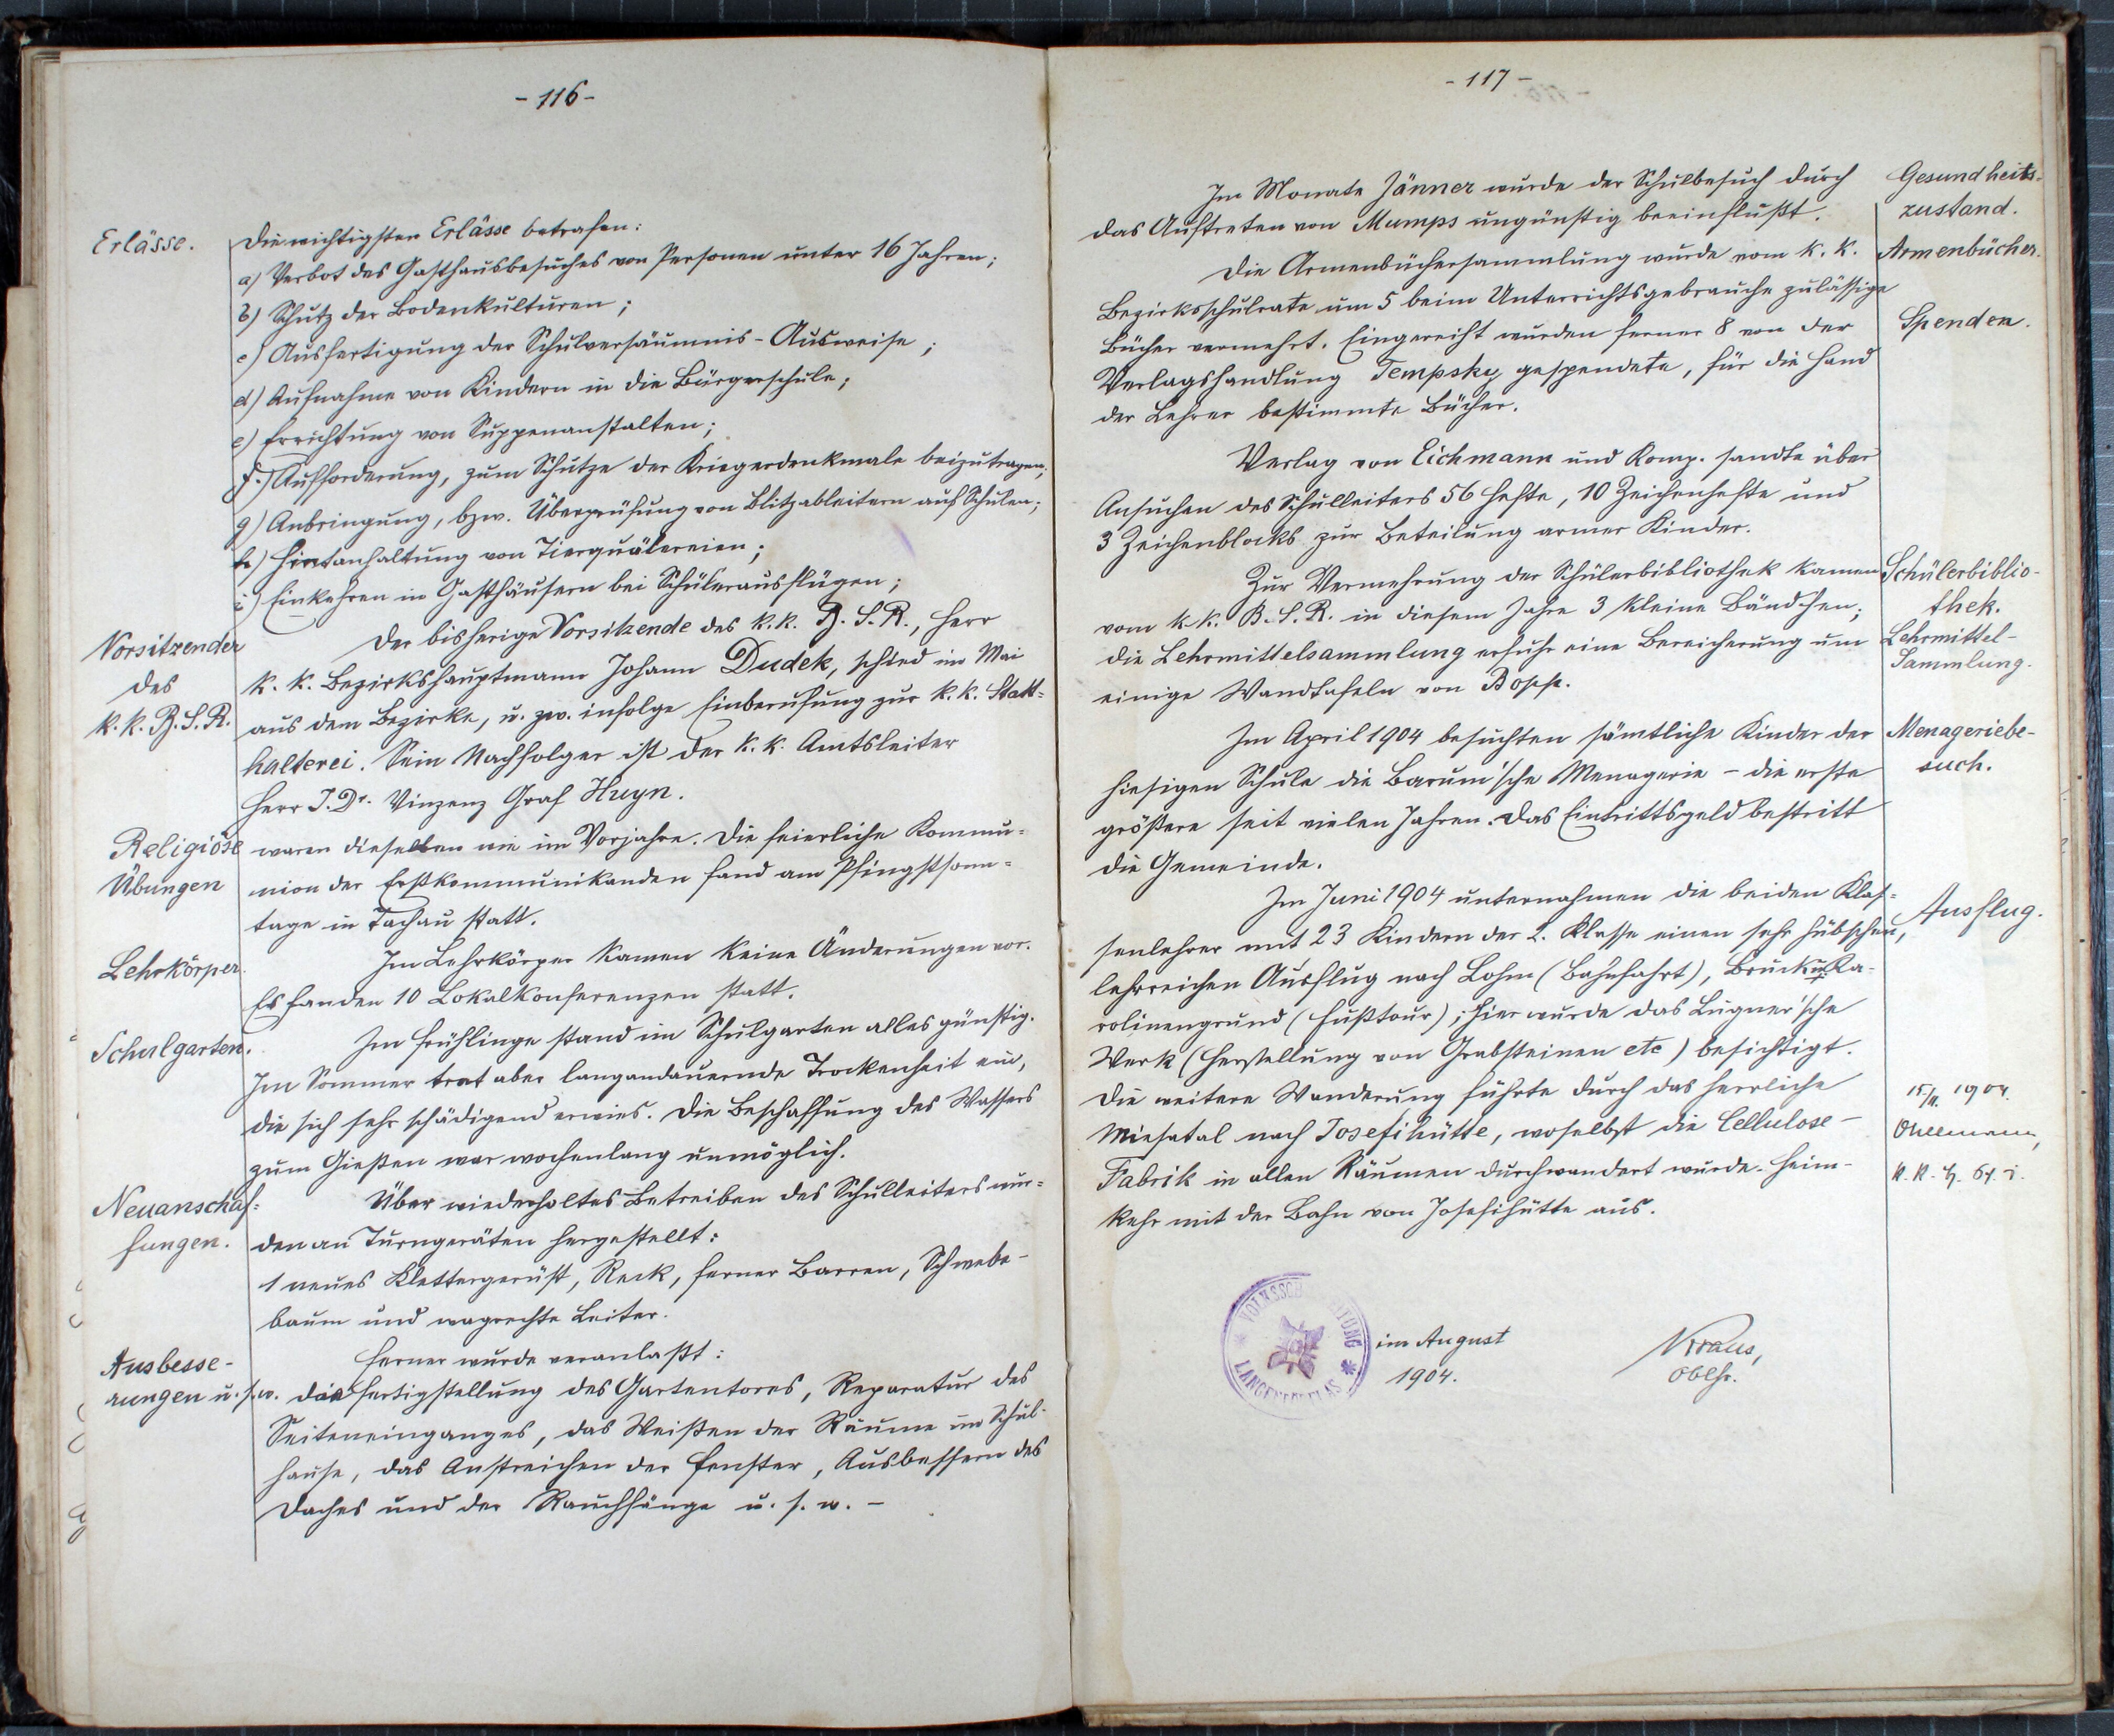 - 116 -
Erlässe.
Die wichtigsten Erlässe betrafen:
a) Verbot des Gasthausbesuches von Personen unter 16 Jahren;
b) Schutz der Bodenkulturen;
c) Ausfertigung der Schulversäumnis-Ausweise;
d) Aufnahme von Kindern in die Bürgerschule;
e) Errichtung von Suppenanstalten;
f.) Aufforderung, zum Schutze der Kriegerdenkmale beizutragen;
g) Anbringung, bzw. Überprüfung von Blitzableitern auf Schulen;
h) Hintanhaltung von Tierquälereien;
i) Einkehren in Gasthäusern bei Schülerausflügen;
Vorsitzender
des
k. k. B. S. R.
Der bisherige Vorsitzende des k. k. B. S. R., Herr
k. k. Bezirkshauptmann Johann Dudek, schied im Mai
aus dem Bezirke, u. zw. infolge Einberufung zur k. k. Statt=
halterei. Sein Nachfolger ist der k. k. Amtsleiter
Herr J. Dr. Vinzenz Graf Huyn.
Religiöse
Übungen
waren dieselben wie im Vorjahre. Die feierliche Kommu=
nion der Erstkommunikanden fand am Pfingstsonn=
tage in Tachau statt.
Lehrkörper.
Im Lehrkörper kamen keine Änderungen vor.
Es fanden 10 Lokalkonferenzen statt.
Schulgarten.
Im Frühlinge stand im Schulgarten alles günstig.
Im Sommer trat aber langandauernde Trockenheit ein,
die sich sehr schädigend erwies. Die Beschaffung des Wassers
zum Gießen war wochenlang unmöglich.
Neuanschaf=
fungen.
Über wiederholtes Betreiben des Schulleiters wur=
den an Turngeräten hergestellt:
1 neues Klettergerüst, Reck, ferner Barren, Schwebe-
baum und wagrechte Leiter.
Ausbesse-
rungen u. s. w.
Ferner wurde veranlaßt:
die Fertigstellung des Gartentores, Reparatur des
Seiteneinganges, das Weißen der Räume im Schul-
hause, das Anstreichen der Fenster, Ausbessern des
Daches und der Rauchfänge u. s. w. -
- 117 -
Gesundheits-
zustand.
Im Monate Jänner wurde der Schulbesuch durch
das Auftreten von Mumps ungünstig beeinflußt.
Armenbücher.
Die Armenbüchersammlung wurde vom k. k.
Bezirksschulrate um 5 beim Unterrichtsgebrauche zulässige
Spenden.
Bücher vermehrt. Eingereiht wurden ferner 8 von der
Verlagshandlung Tempsky gespendete, für die Hand
der Lehrer bestimmte Bücher.
Verlag von Eichmann und Komp. sandte über
Ansuchen des Schulleiters 56 Hefte, 10 Zeichenhefte und
3 Zeichenblocks zur Beteilung armer Kinder.
Schülerbiblio-
thek.
Zur Vermehrung der Schülerbibliothek kamen
vom k. k. B. S. R. in diesem Jahre 3 kleine Bändchen;
Lehrmittel-
Sammlung.
die Lehrmittelsammlung erfuhr eine Bereicherung um
einige Wandtafeln von Bopp.
Menageriebe-
such.
Im April 1904 besuchten sämtliche Kinder der
hiesigen Schule die Barum'sche Menagerie - die erste
größere seit vielen Jahren. Das Eintrittsgeld bestritt
die Gemeinde.
Ausflug.
Im Juni 1904 unternahmen die beiden Klas=
senlehrer mit 23 Kindern der 2. Klasse einen sehr hübschen,
lehrreichen Ausflug nach Lohm (Bahnfahrt), Bruck u. Ka-
rolinengrund (Fußtour); hier wurde das Lugner'sche
Werk (Herstellung von Grabsteinen etc) besichtigt.
Die weitere Wanderung führte durch das herrliche
Miesatal nach Josefihütte, woselbst die Cellulose-
Fabrik in allen Räumen durchwandert wurde. Heim-
kehr mit der Bahn von Josefihütte aus.
1904.
im August
1904.
Kraus,
Oblhr.